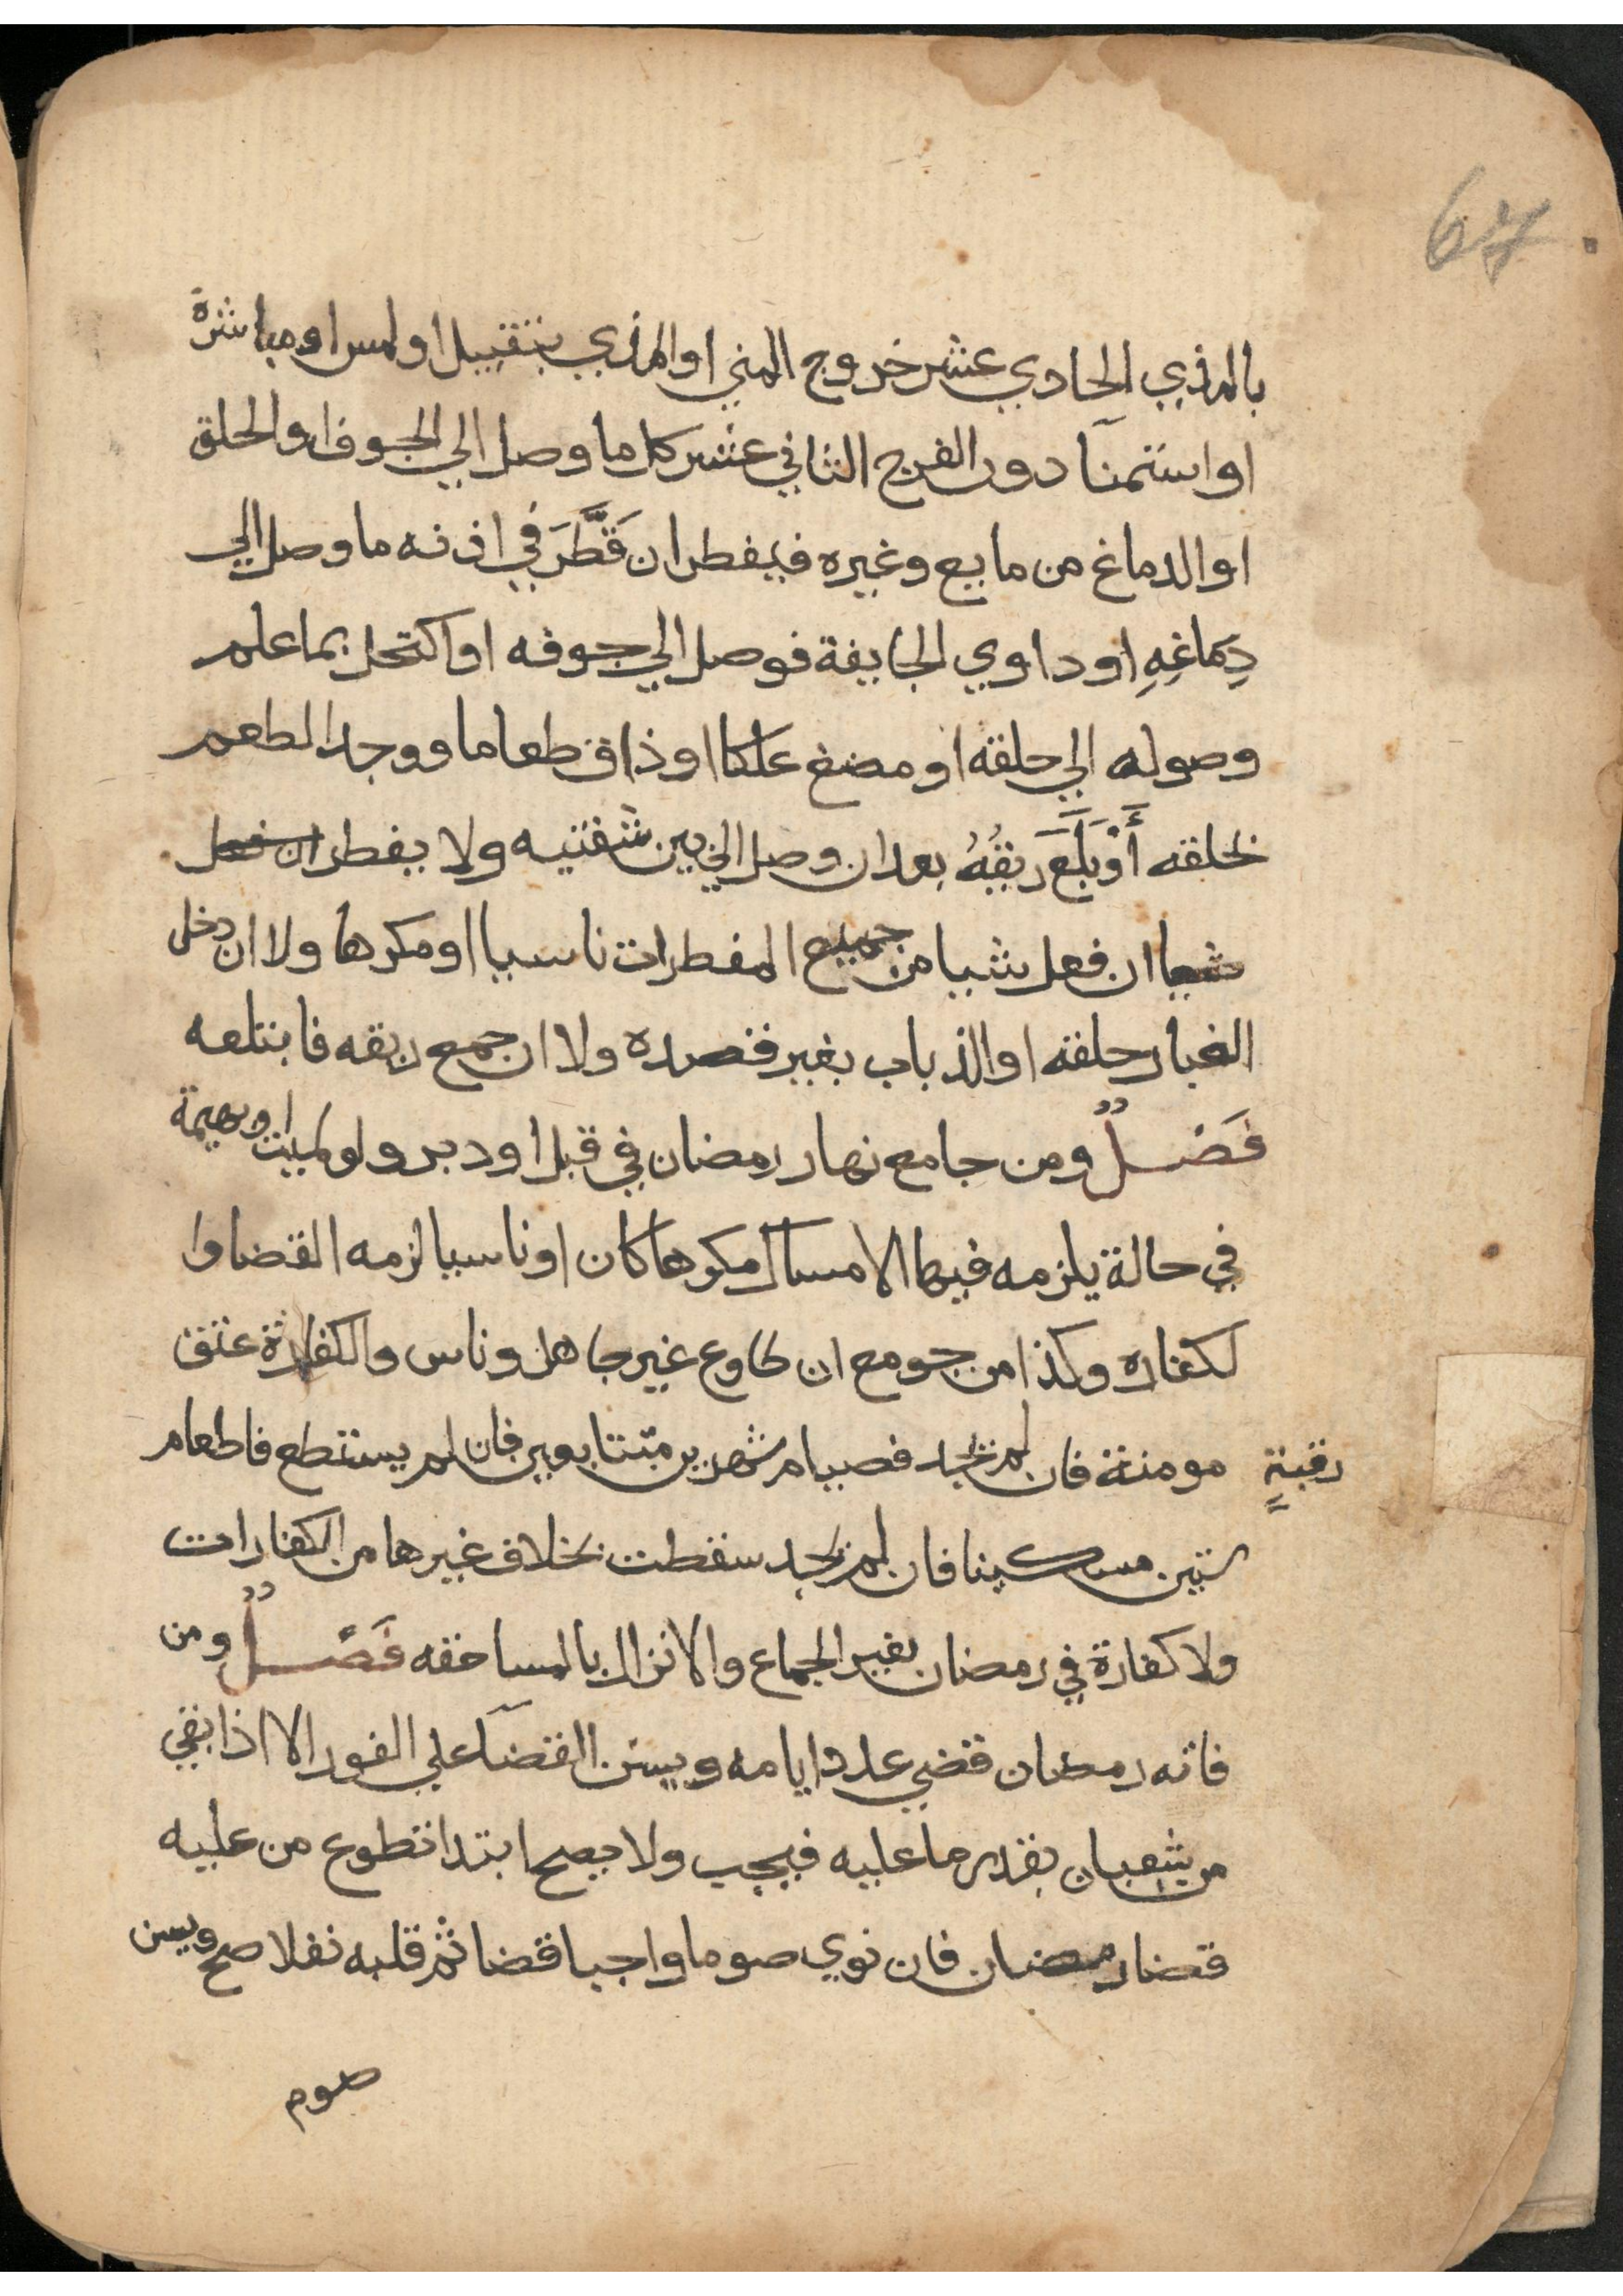 67
بالمذي الحادي عشر خروج المني او المذي بتقبيل او لمس او مباشرة
او استمنآ دون الفرج الثاني عشر كل ما وصل الي الجوف او الحلق
او الدماغ من مايع وغيره فيفطر ان قَطَّرَ في اذنه ما وصل الي
دِمَاغِهِ او داوي الجايفة فوصل الي جوفه او اكتحل بما علم
وصوله الي حلقه او مضغ علكا او ذاق طعاما ووجد الطعم
بحلقه أَوْ بَلَعَ رِيقِهُ بعد ان وصل الي بين شفتيه ولا يفطر ان فعل
شيا ان فعل شيا من جميع المفطرات ناسيا او مكرها ولا ان دخل
الغبار حلقه او الذباب بغير قصده ولا ان جمع ريقه فابتلعه
فَصْــلٌ ومن جامع نهار رمضان في قبل او دبر ولو لميت او بهيمة
في حالة يلزمه فيها الامساك مكرها كان او ناسيا لزمه القضا وا
لكفاره وكذا من جومع ان طاوع غير جاهل وناس والكفارة عتق
رقبةٍ مومنة فان لم يجد فصيام شهرين متتابعين فان لم يستطع فاطعام
ستين مسكينا فان لم يجد سقطت بخلاف غيرها من الكفارات
ولا كفارة في رمضان بغير الجماع والانزال بالمساحقه فَصْــلٌ ومن
فاته رمضان قضي عدد ايامه ويسن القضآ علي الفور الا اذا بقي
من شعبان بقدر ما عليه فيجب ولا يصح ابتدا تطوع من عليه
قضا رمضان فان نوي صوما واجبا قضا ثم قلبه نفلا صح ويسن
صوم